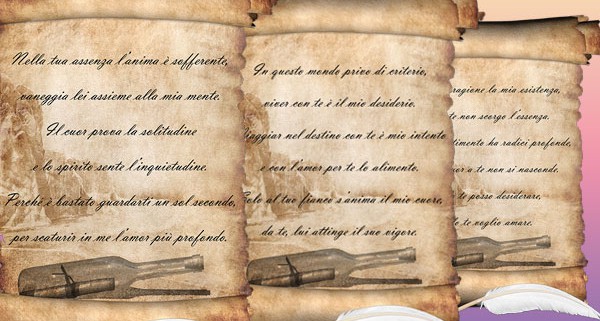 Nella tua assenza l'anima è sofferente,
vaneggia lei assieme alla mia mente.
Il cuor prova la solitudine
e lo spirito sente l'inquietudine.
Perché è bastato guardarti un sol secondo,
per scaturir in me l'amor più profondo.
In questo mondo privo di criterio,
viver con te è il mio desiderio.
Viaggiar nel destino con te è mio intento
e con l'amor per te lo alimento.
Solo al tuo fianco s'anima il mio cuore,
da te, lui attinge il suo vigore.
ragione la mia esistenza,
te non scorgo l'essenza.
timento ha radici profonde,
mor a te non si nasconde.
te posso desiderare,
te voglio amare.